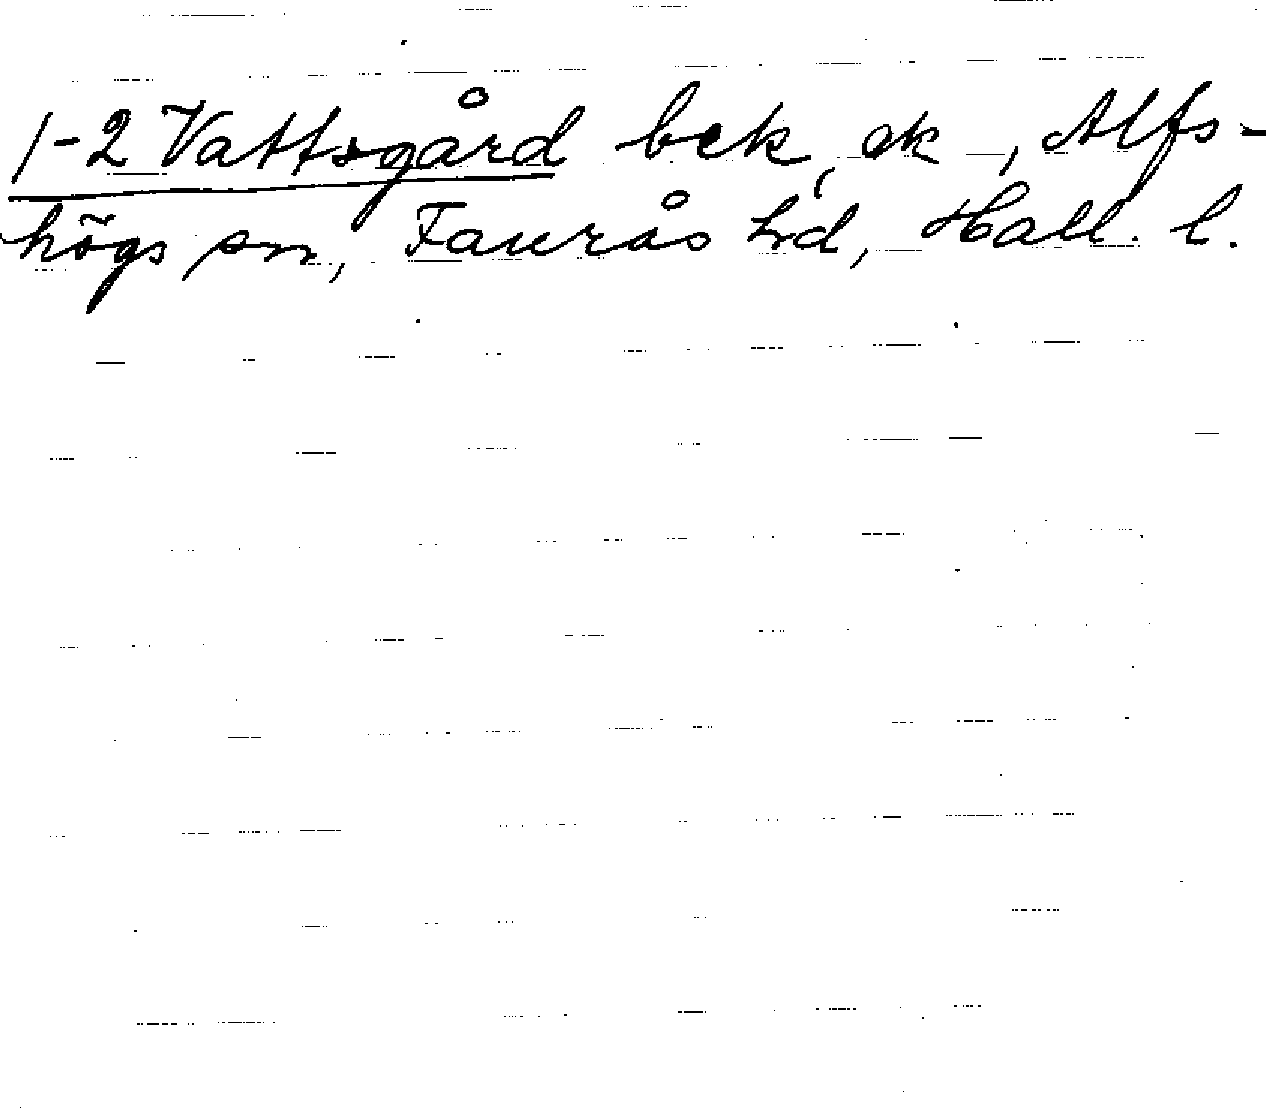 1-2 Vattsgård bek, ek -, Alfs-
högs sn, Faurås hd, Hall. l.